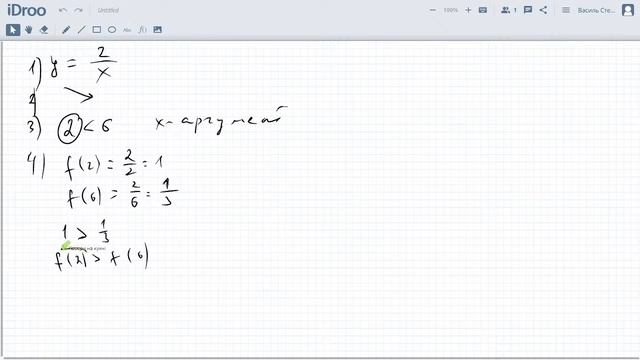 iDroo
Untitled
100%
1
Василь Сте...
1) y = 2/x
2
3) 2 < 6 x - аргумент
4) f(2) = 2/2 = 1
f(6) = 2/6 = 1/3
1 > 1/3
f(2) > f(6)